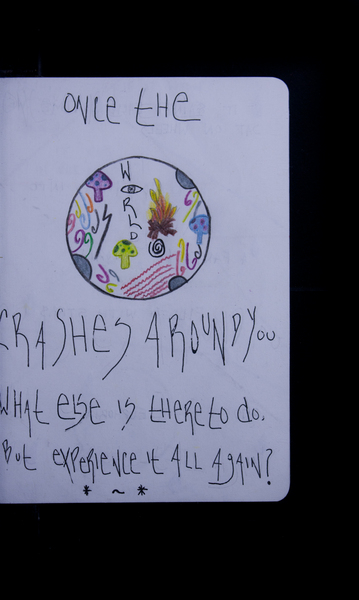 ONCE tHE
WORLD
CRASHES AROUND YOU
WHAt ElsE is tHERE to do.
But EXPERIENCE it All AgAiN?
* ~ *